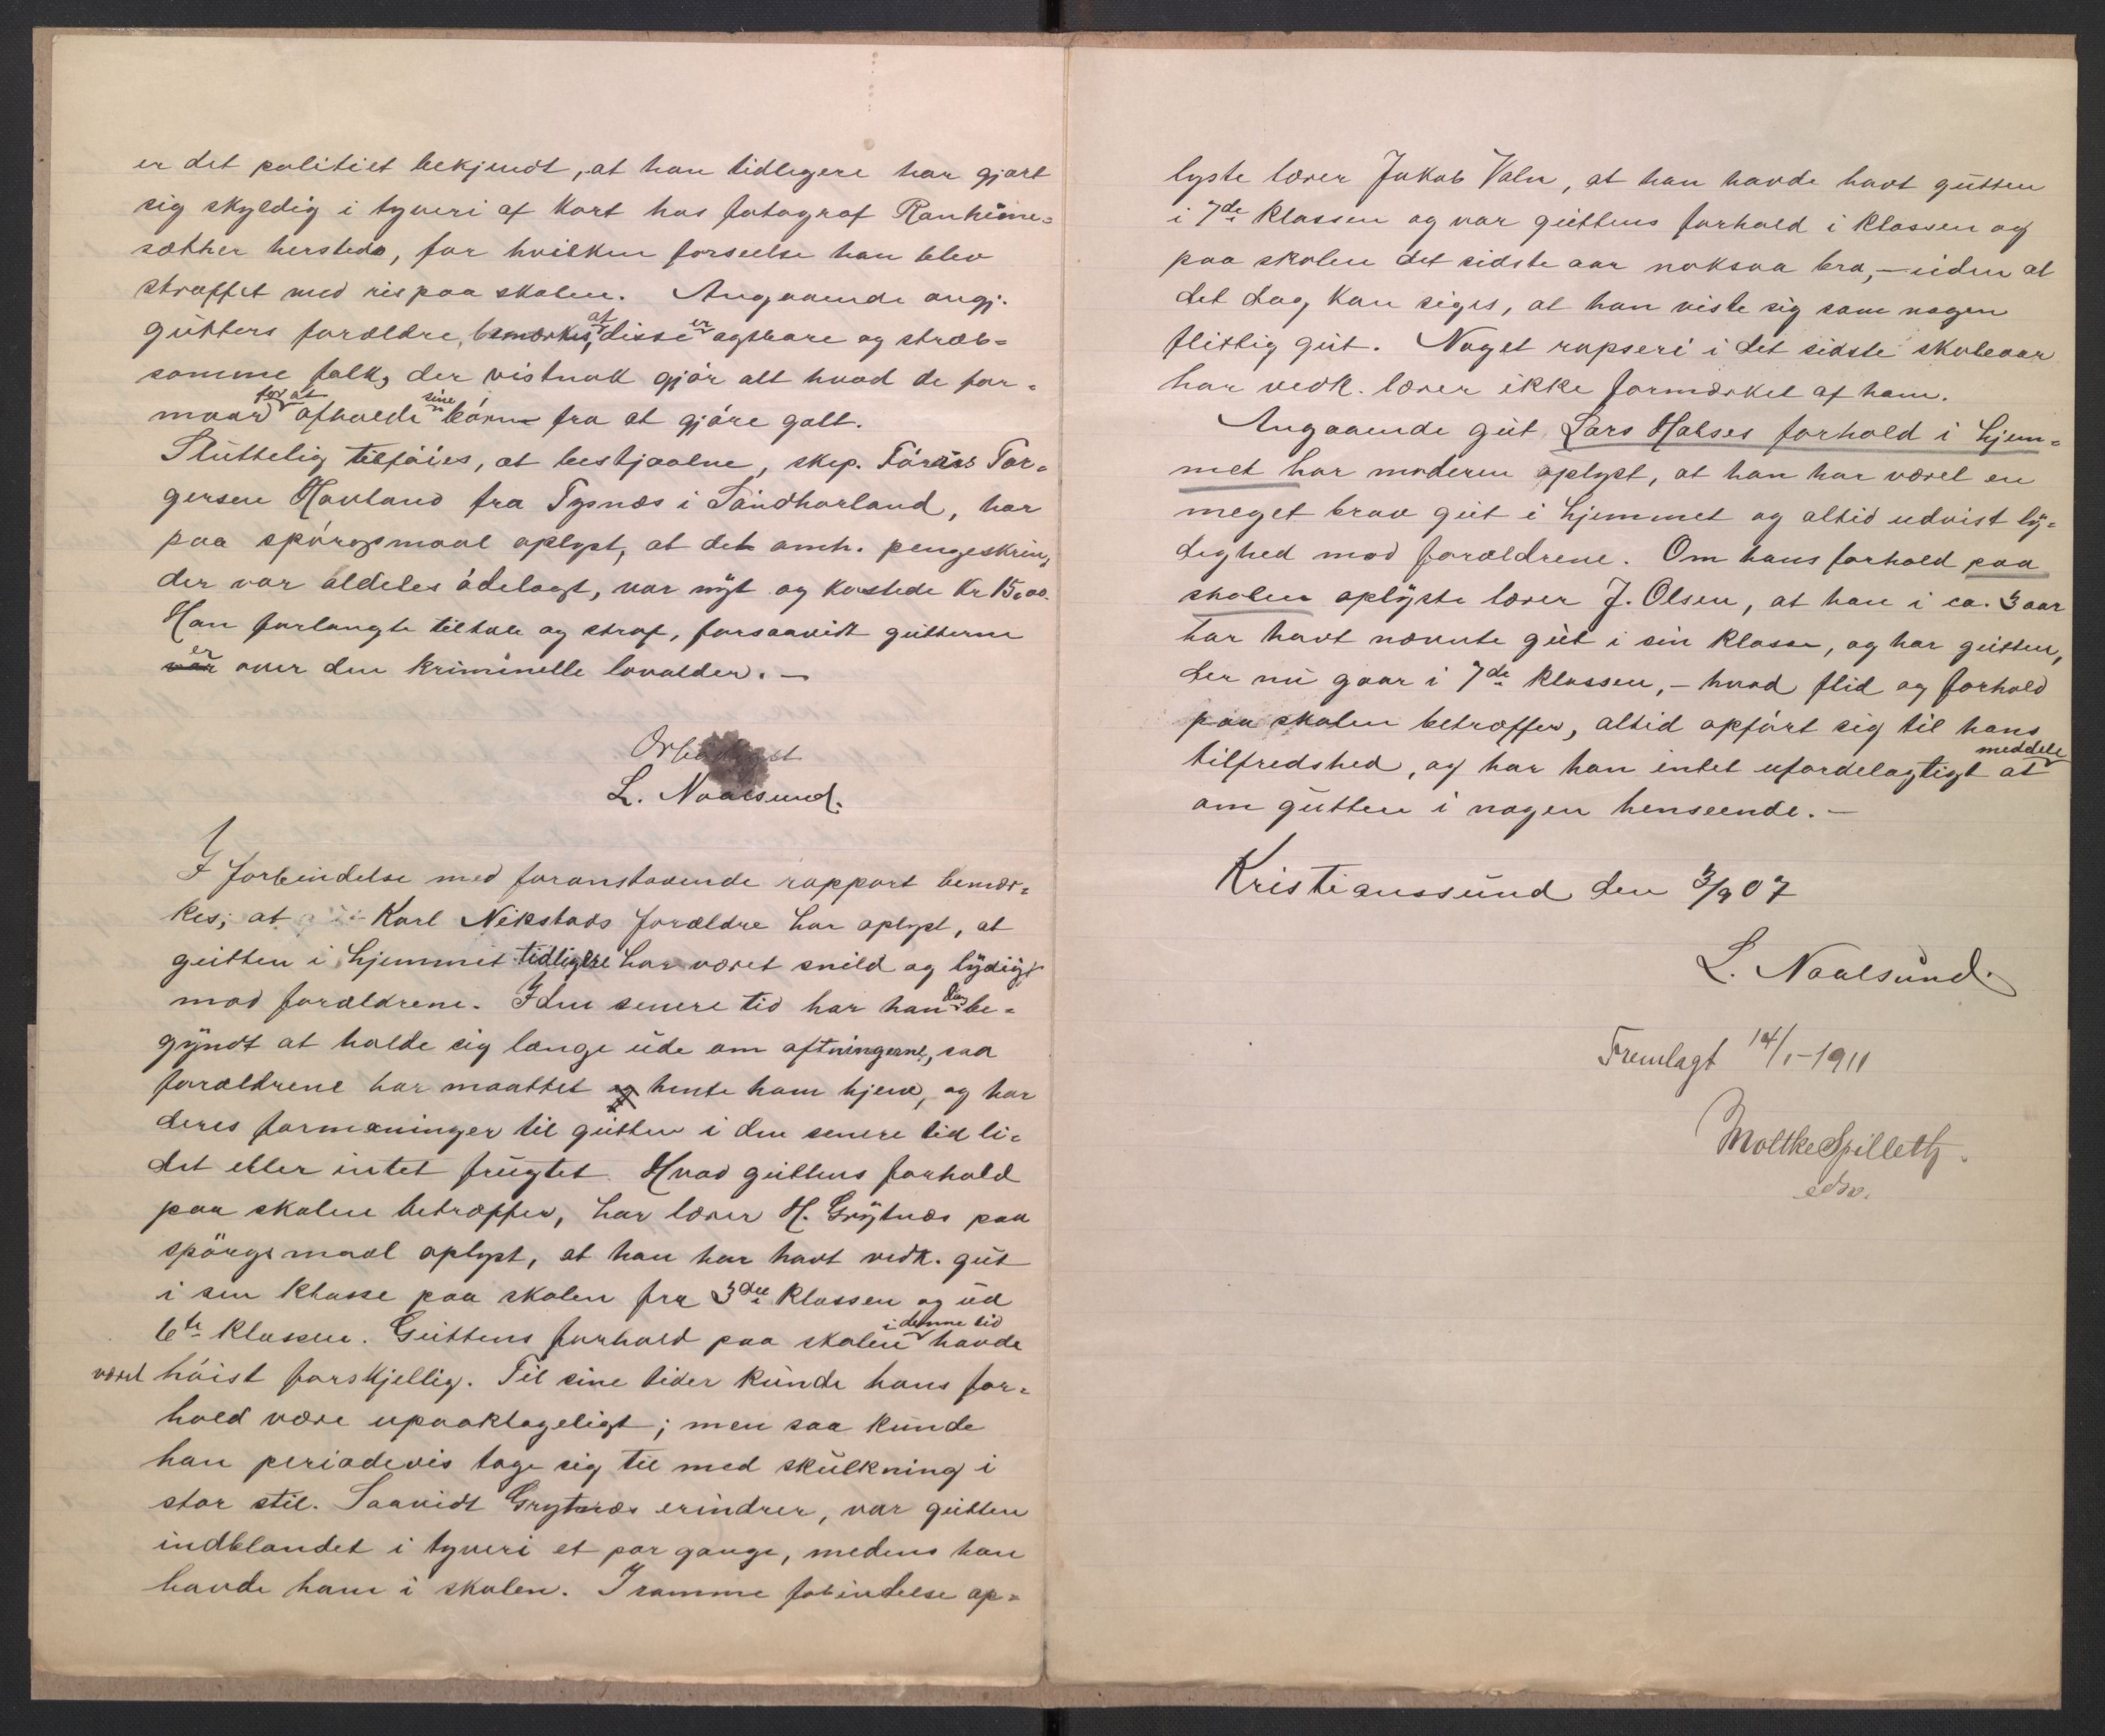 er det politiet bekjendt, at han tidligere har gjort
sig skyldig i tyveri af kort hos fotograf Ranheime=
sæther hersteds, for hvilken forseelse han blev
straffet med ris paa skolen. Angaaende angj.
gutters forældre, bemærkes, at disse er agtbare og stræb=
somme folk, der vistnok gjør alt hvad de for=
maar for at afholde sine børn fra at gjøre galt.
Sluttelig tilføies, at bestjaalne, skip. Tor=
gersen Havland fra Tysnæs i Søndhorland, har
paa spørgsmaal oplyst, at det omh. pengeskrin,
der var aldeles ødelagt, var nyt og kostede Kr 15,00.
Han forlangte tiltale og straf, forsaavidt gutterne
var er over den kriminelle lovalder. —
Ærbødigst
L. Naalsund.
I forbindelse med foranstaaende rapport bemær=
kes; at Karl Nikstads forældre har oplyst, at
gutten i hjemmet tidligere har været snild og lydig
mod forældrene. I den senere tid har han dog be=
gyndt at holde sig længe ude om aftningerne, saa
forældrene har maattet hente ham hjem, og har
deres formaninger til gutten i den senere tid li=
det eller intet frugtet. Hvad guttens forhold
paa skolen betræffer, har lærer H. Grytnæs paa
spørgsmaal oplyst, at han har havt vedk. gut
i sin klasse paa skolen fra 3die klassen og ud
6te klassen. Guttens forhold paa skolen i denne tid havde
været høist forskjellig. Til sine tider kunde hans for=
hold være upaaklageligt; men saa kunde
han periodevis tage sig til med skulkning i
stor stil. Saavidt Grytnæs erindrer, var gutten
indblandet i tyveri et par gange, medens han
havde ham i skolen. I samme fobindelse op=
lyste lærer Jakob Valn, at han havde havt gutten
i 7de klassen og var guttens forhold i klassen og
paa skolen det sidste aar noksaa bra, — uden at
det dog kan siges, at han viste sig som nogen
flittig gut. Noget rapseri i det sidste skoleaar
har vedk. lærer ikke formærket af ham.
Angaaende gut Lars Halses forhold i hjem=
met har moderen oplyst, at han har været en
meget brav gut i hjemmet og altid udvist ly=
dighed mod forældrene. Om hans forhold paa
skolen oplyste lærer J. Olsen, at han i ca. 3 aar
har havt nævnte gut i sin klasse, og har gutten,
der nu gaar i 7de klassen, — hvad flid og forhold
paa skolen betræffer, altid opført sig til hans
tilfredshed, og har han intet ufordelagtigt at meddele
om gutten i nogen henseende. —
Kristianssund den 3/9 07
L. Naalsund.
Fremlagt 14/1-1911
Moltke